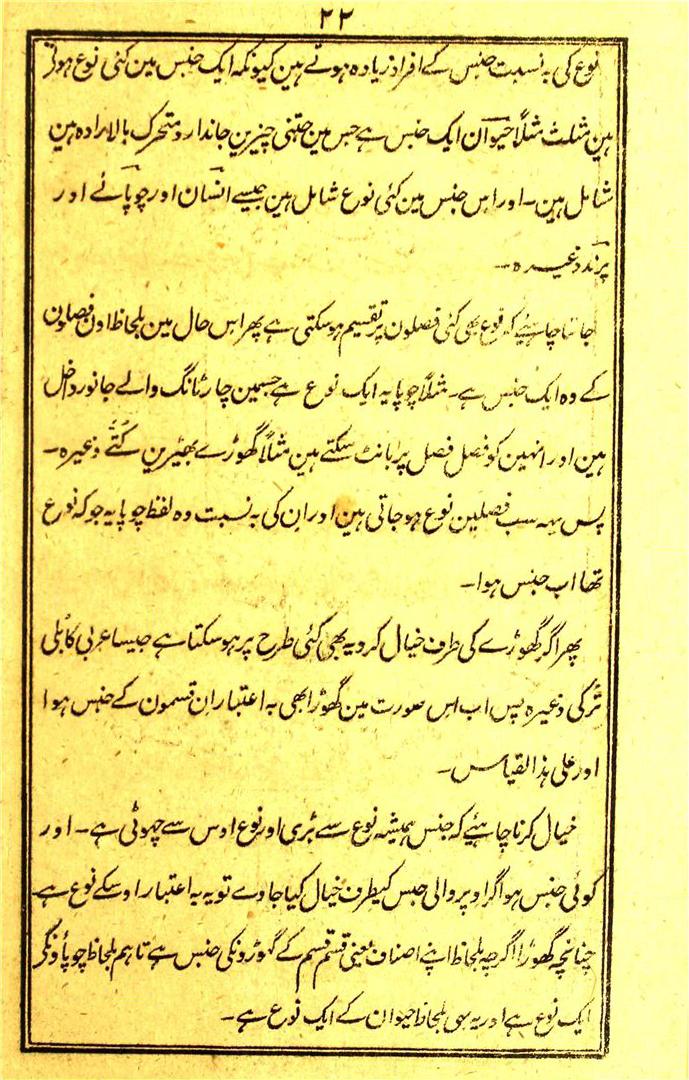 ۲۲
نوع کی بہ نسبت جنس کے افراد زیادہ ہوتے ہین کیونکہ ایک جنس مین کئی نوع ہوتی
ہین مثلث مثلاً حیوان ایک جنس ہے جس مین جتنی چیزین جاندار و متحرک بالارادہ ہین
شامل ہین۔ اور اس جنس مین کئی نوع شامل ہین جیسے انسان اور چوپائے اور
پرند وغیرہ۔
جاننا چاہئے کہ نوع بھی کئی فصلون پر تقسیم ہوسکتی ہے پھر اس حال مین بلحاظ اون فصلون
کے وہ ایک جنس ہے۔ مثلاً چوپایہ ایک نوع ہے جسمین چار ٹانگ والے جانور داخل
ہین اور انہین کو فصل فصل پر بانٹ سکتے ہین مثلاً گھوڑے بھیڑین کتے وغیرہ۔
پس یہہ سب فصلین نوع ہوجاتی ہین اور ان کی بہ نسبت وہ لفظ چوپایہ جو کہ نوع
تھا اب جنس ہوا۔
پھر اگر گھوڑے کی طرف خیال کرو یہ بھی کئی طرح پر ہوسکتا ہے جیسا عربی کابلی
ترکی وغیرہ پس اب اس صورت مین گھوڑا بھی بہ اعتبار ان قسمون کے جنس ہوا
اور علی ہذا القیاس۔
خیال کرنا چاہئے کہ جنس ہمیشہ نوع سے بڑی اور نوع اوس سے چھوٹی ہے۔ اور
کوئی جنس ہو اگر اوپر والی جنس کیطرف خیال کیا جاوے تو یہ بہ اعتبار اوسکے نوع ہے
چنانچہ گھوڑا اگرچہ بلحاظ اپنے اصناف یعنی قسم قسم کے گھوڑونکی جنس ہے تاہم بلحاظ چوپاؤنکے
ایک نوع ہے اور یہ سی بلحاظ حیوان کے ایک نوع ہے۔